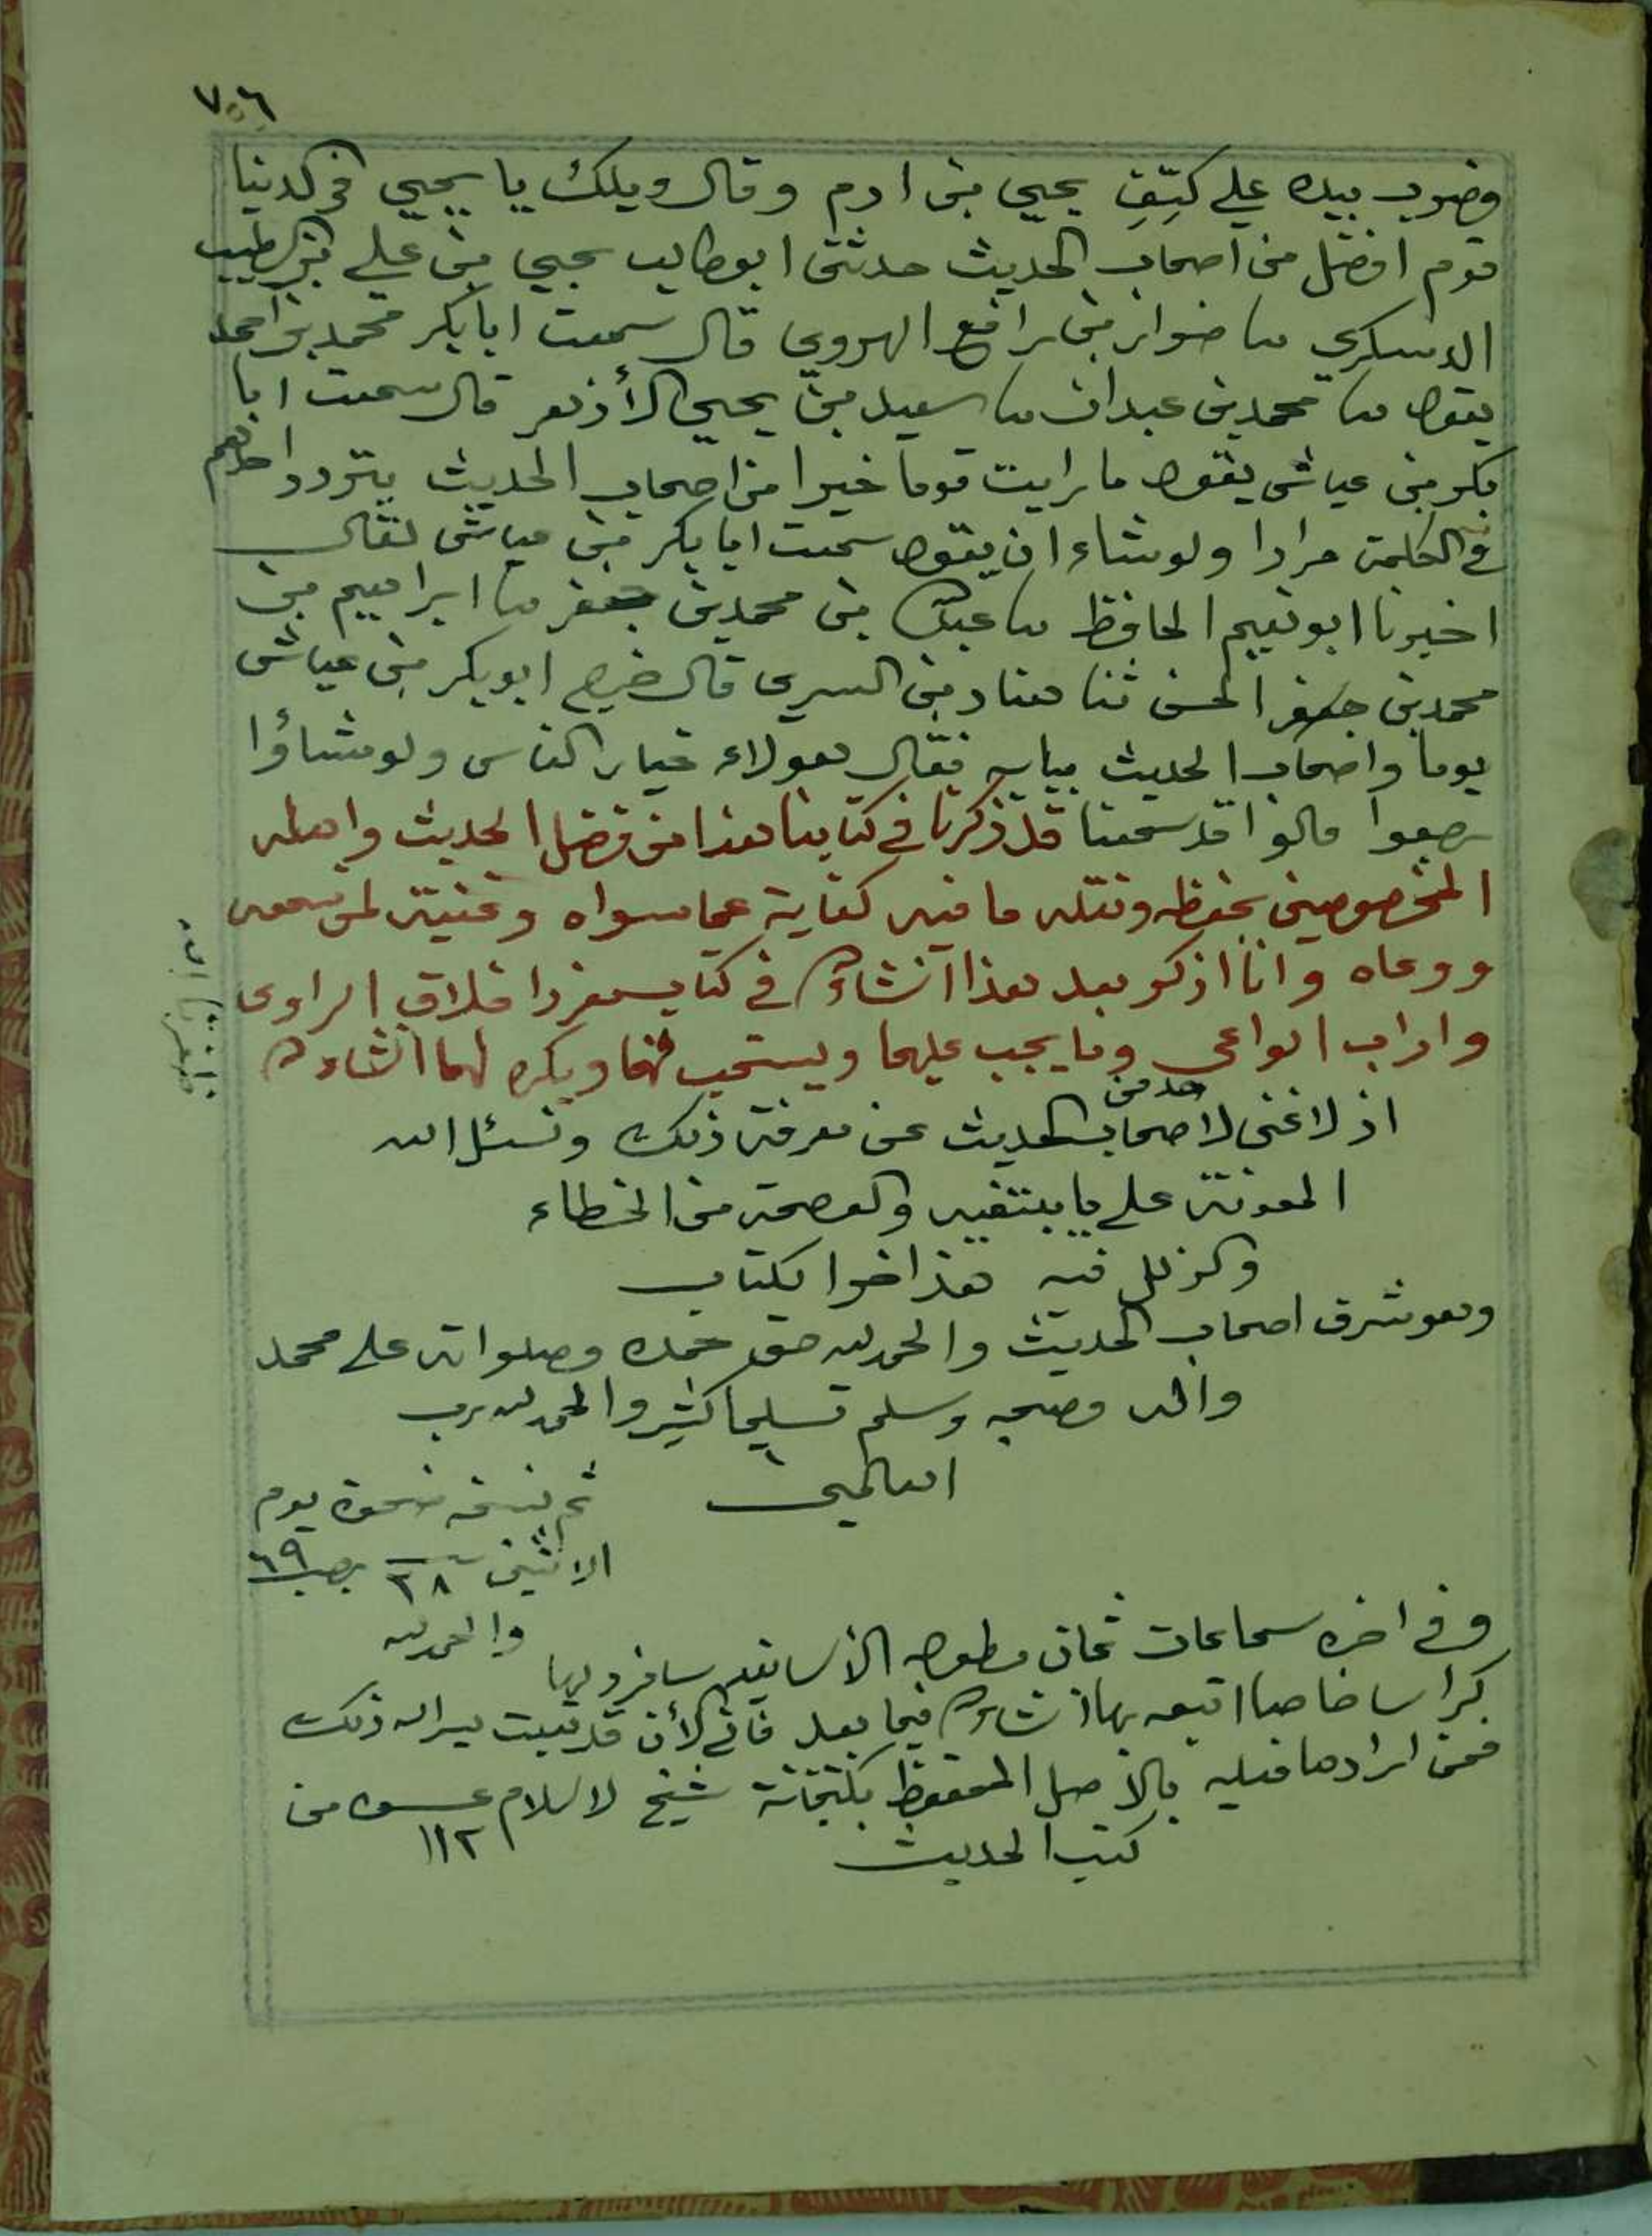 ٧٥٦
وضرب بيده علے كتِفِ يحيي بن ادم وقال ويلك يا يحيي في الدينا
قوم افضل من اصحاب الحديث حدثنى ابوطالب يحيي بن علے بن الطيب
الدسكري نا ضوابن رافع الهروي قال سمعت ابابكر محمد بن احمد
يقول نا محمد بن عبدان نا سعيد بن يحيي الأزهر قال سمعت ابا
بكر بن عياش يقول ما رايت قوما خيرا من اصحاب الحديث يتردد احدهم
في الكلمة مرارا ولو شاء ان يقول سمعت ابابكر بن عياش لقال
اخبرنا ابو نعيم الحافظ نا عبدالله بن محمد بن جعفر نا ابراهيم بن
محمد بن جعفر الحسن ثنا هناد بن السري قال خرج ابوبكر بن عياش
يوما واصحاب الحديث ببابه فقال هولاء خيار الناس ولو شاؤا
رجعوا قالوا قد سمعنا قد ذكرنا في كتابنا هذا من فضل الحديث واهله
المخصوصين بحفظه ونقله ما فيه كفاية عما سواه وغنية لمن سمعه
ووعاه وانا اذكر بعد هذا انشاءالله في كتاب مفرد اخلاق الراوى
واداب الواعى وما يجب عليهما ويستحب لهما ويكره لهما انشاءالله
اذ لا غنى لاحد من اصحاب الحديث عن معرفة ذلك ونسئل الله
المعونة علے ما ينتغيه والعصمة من الخطاء
والزلل فيه هذا اخر الكتاب
وهو شرف اصحاب الحديث والحمد لله حق حمده وصلواته علے محمد
واله وصحبه وسلم تسليما كثيرا والحمد لله رب
العالمين
تم نسخه ضحوة يوم
الاثنين ٢٨ رجب ٦٩
والحمد لله
وفي اخره سماعات ثمان مطولة الأسانيد سافرد لها
كراسا خاصا اتبعه بها انشاءالله فيما بعد فاني الأن قد تعبت يسر الله ذلك
فمن ارادها فعليه بالأصل المحفوظ بكتبخانة شيخ الاسلام من
كتب الحديث ١١٢